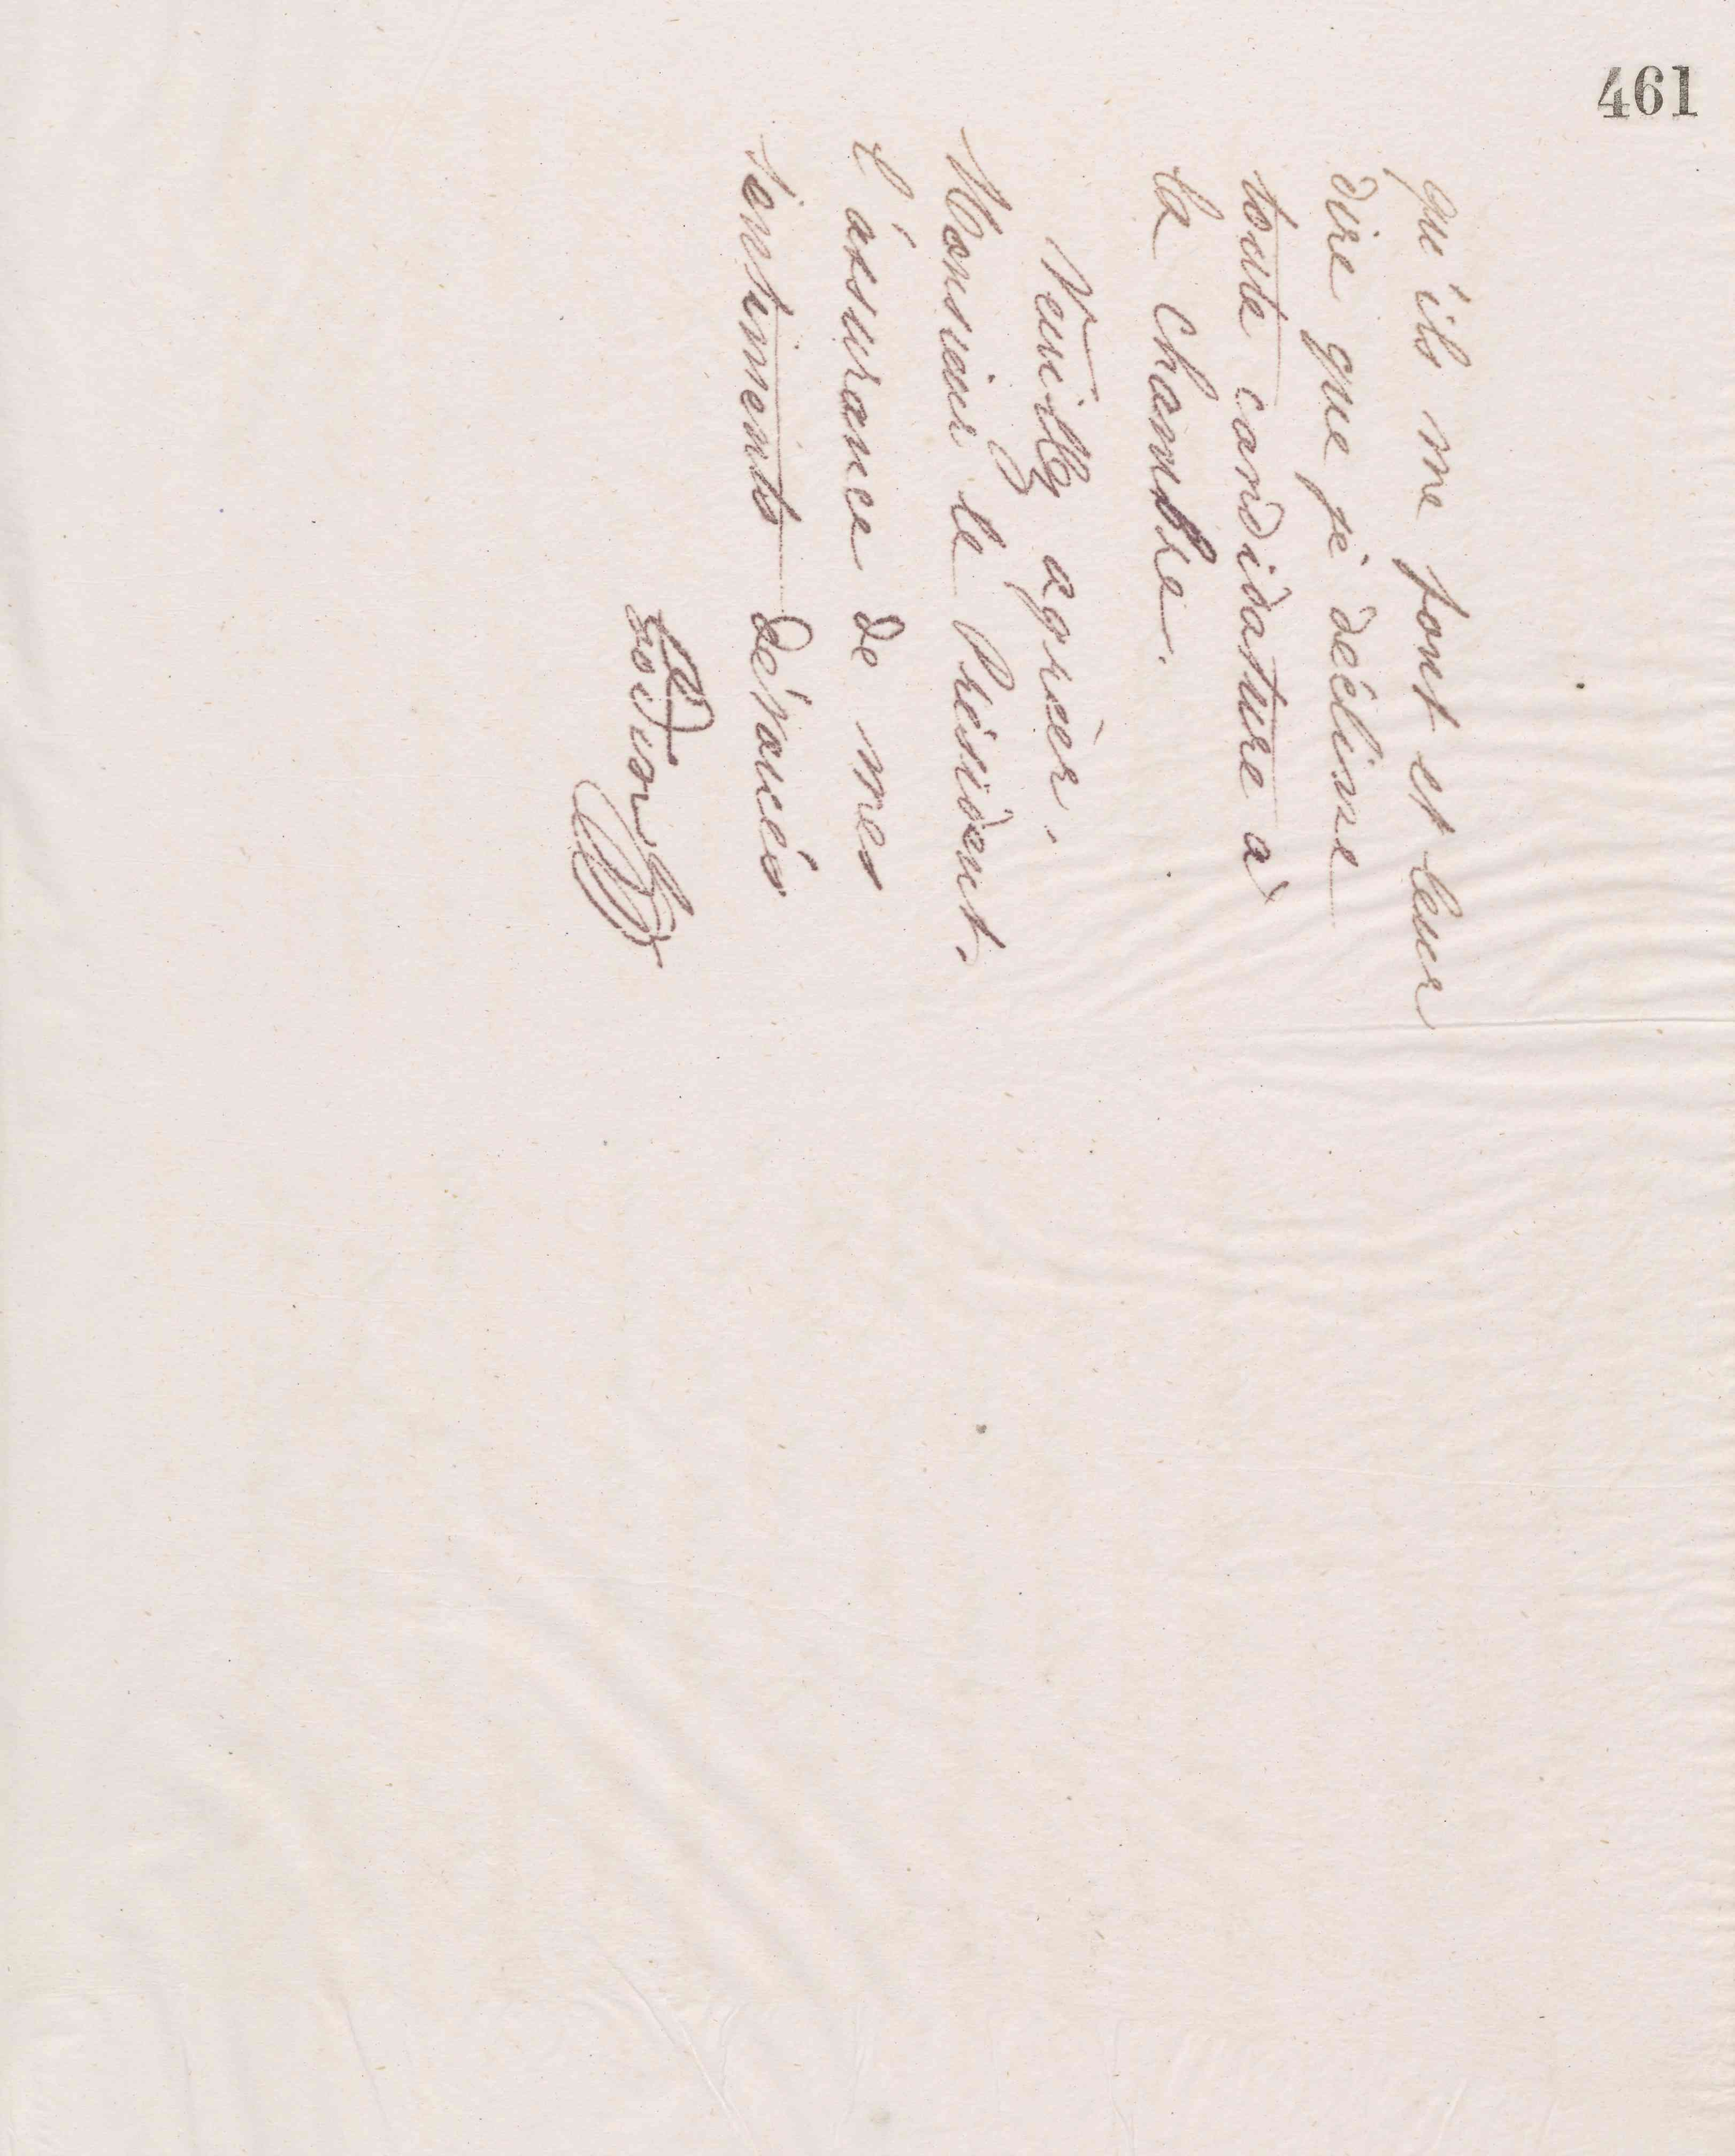 461
qu'ils me font et leur
dire que je décline
toute candidature à
la chambre.
Veuillez agréer,
Monsieur le Président,
l'assurance de mes
sentiments dévoués
Godin